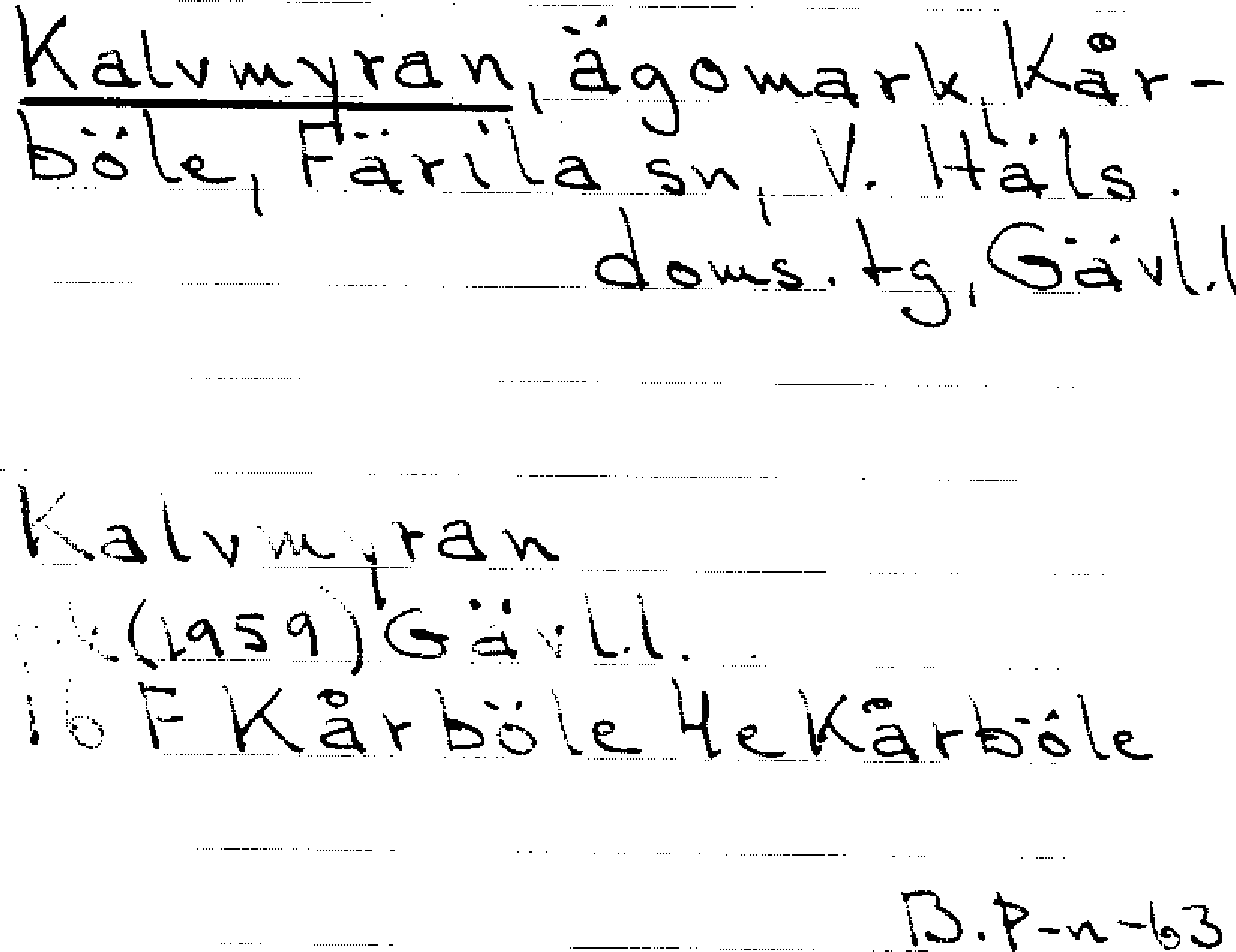 Kalvmyran, ägomark, Kår-
böle, Färila sn, V. Häls.
doms. tg, Gävl.l
Kalvmyran
(1959) Gävl.l.
16 F Kårböle 4e Kårböle
B.P-n-63